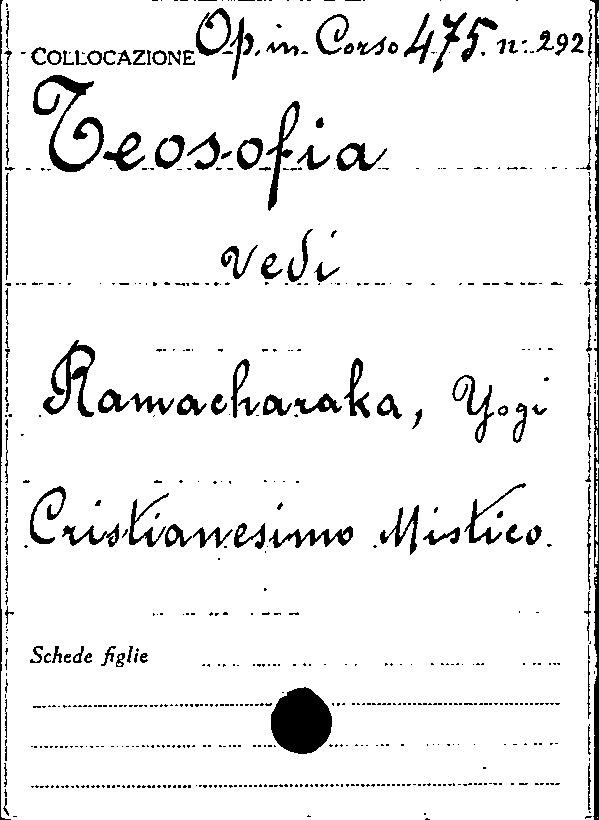 COLLOCAZIONE Op. in Corso 475. n: 292
Teosofia
vedi
Ramacharaka, Yogi
Cristianesimo Mistico.
Schede figlie